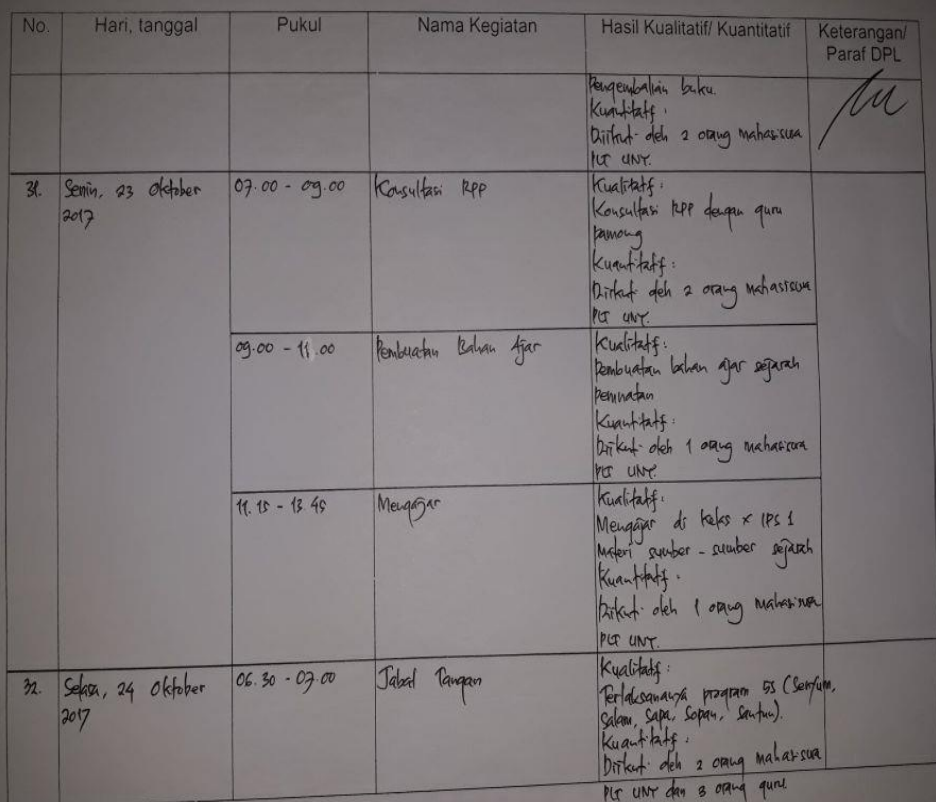 No. Hari, tanggal Pukul Nama Kegiatan Hasil Kualitatif/ Kuantitatif Keterangan/
Paraf DPL
Pengembalian buku.
Kuantitatif :
Diikuti oleh 2 orang mahasiswa
PLT UNY.
31. Senin, 23 Oktober 07.00 - 09.00 Konsultasi RPP Kualitatif :
2017 Konsultasi RPP dengan guru
pamong
Kuantitatif :
Diikuti oleh 2 orang mahasiswa
PLT UNY.
09.00 - 11.00 Pembuatan Bahan Ajar Kualitatif :
Pembuatan bahan ajar sejarah
peminatan
Kuantitatif :
Diikuti oleh 1 orang mahasiswa
PLT UNY.
11.15 - 13.45 Mengajar Kualitatif :
Mengajar di kelas X IPS 1
Materi sumber - sumber sejarah
Kuantitatif :
Diikuti oleh 1 orang mahasiswa
PLT UNY.
32. Selasa, 24 Oktober 06.30 - 07.00 Jabat Tangan Kualitatif :
2017 Terlaksananya program 5S (Senyum,
Salam, Sapa, Sopan, Santun).
Kuantitatif :
Diikuti oleh 2 orang mahasiswa
PLT UNY dan 3 orang guru